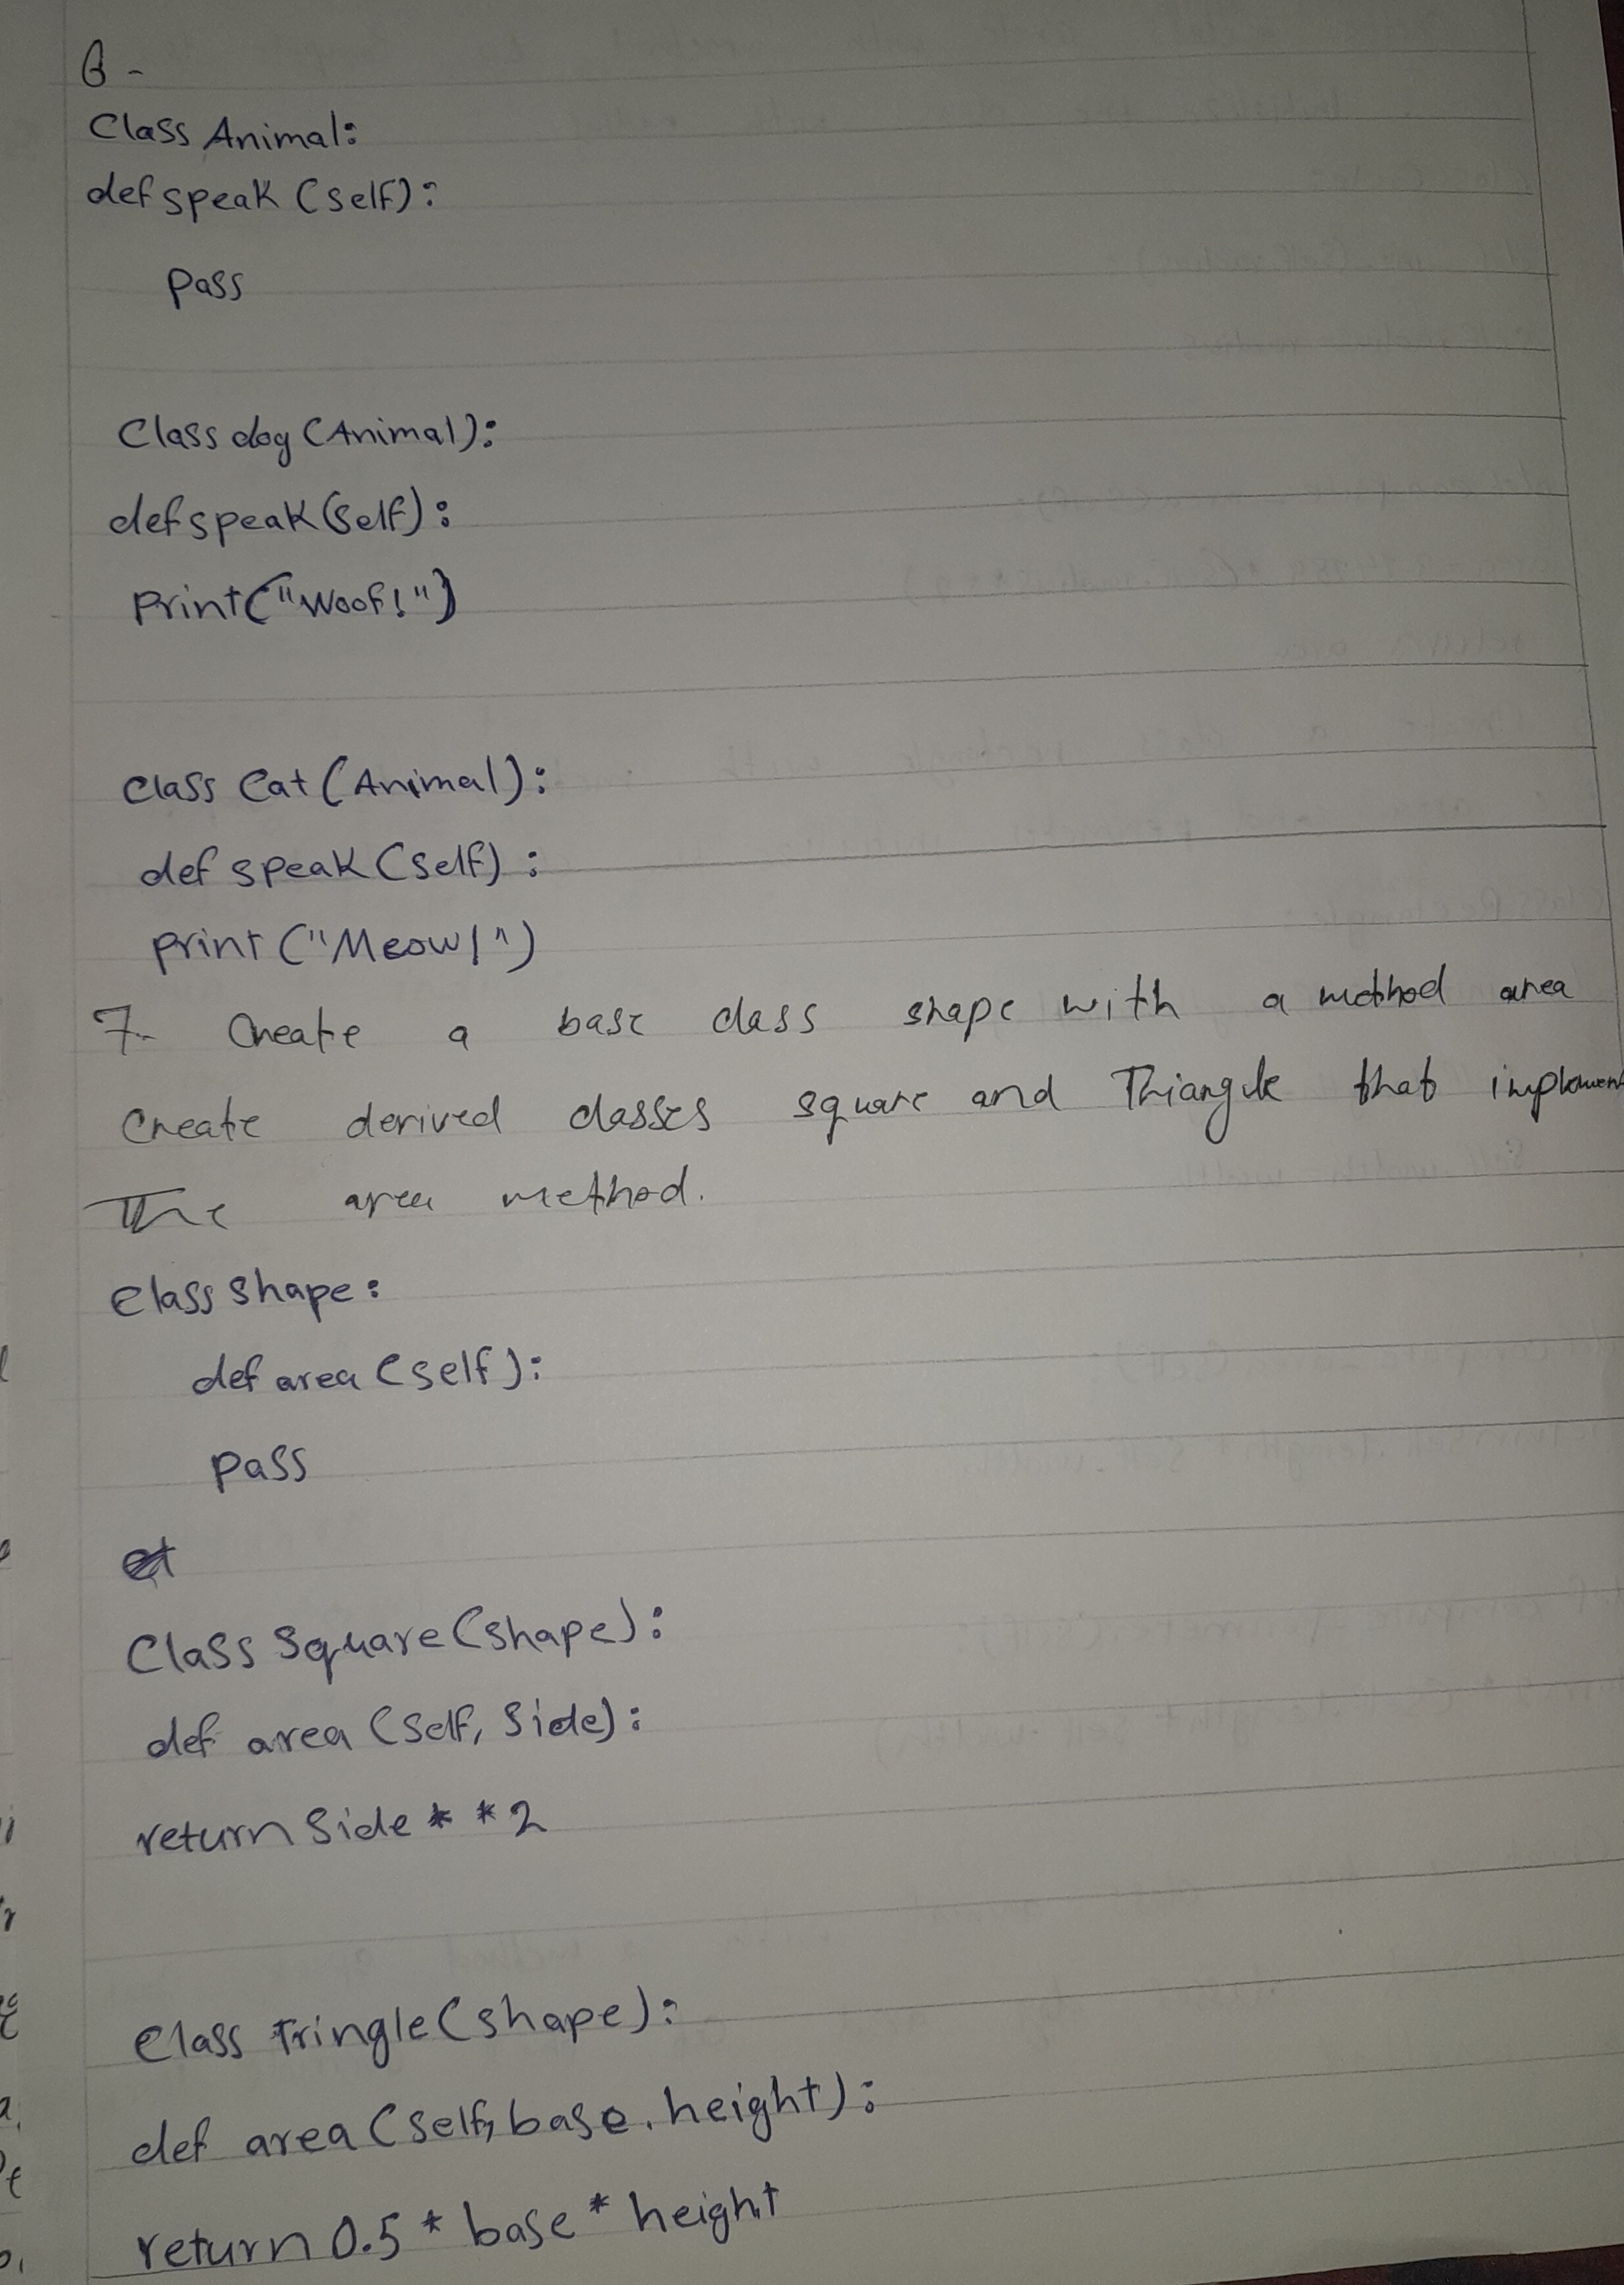 6-
Class Animal:
def speak (self):
pass
Class dog (Animal):
def speak (self):
Print("Woof!")
Class Cat (Animal):
def speak (self):
print ("Meow!")
7- Create a base class shape with a method area
Create derived classes square and Triangle that implement
The area method.
Class Shape:
def area (self):
pass
Class Square (shape):
def area (self, Side):
return Side * *2
Class Tringle (shape):
def area (self, base, height):
return 0.5 * base * height